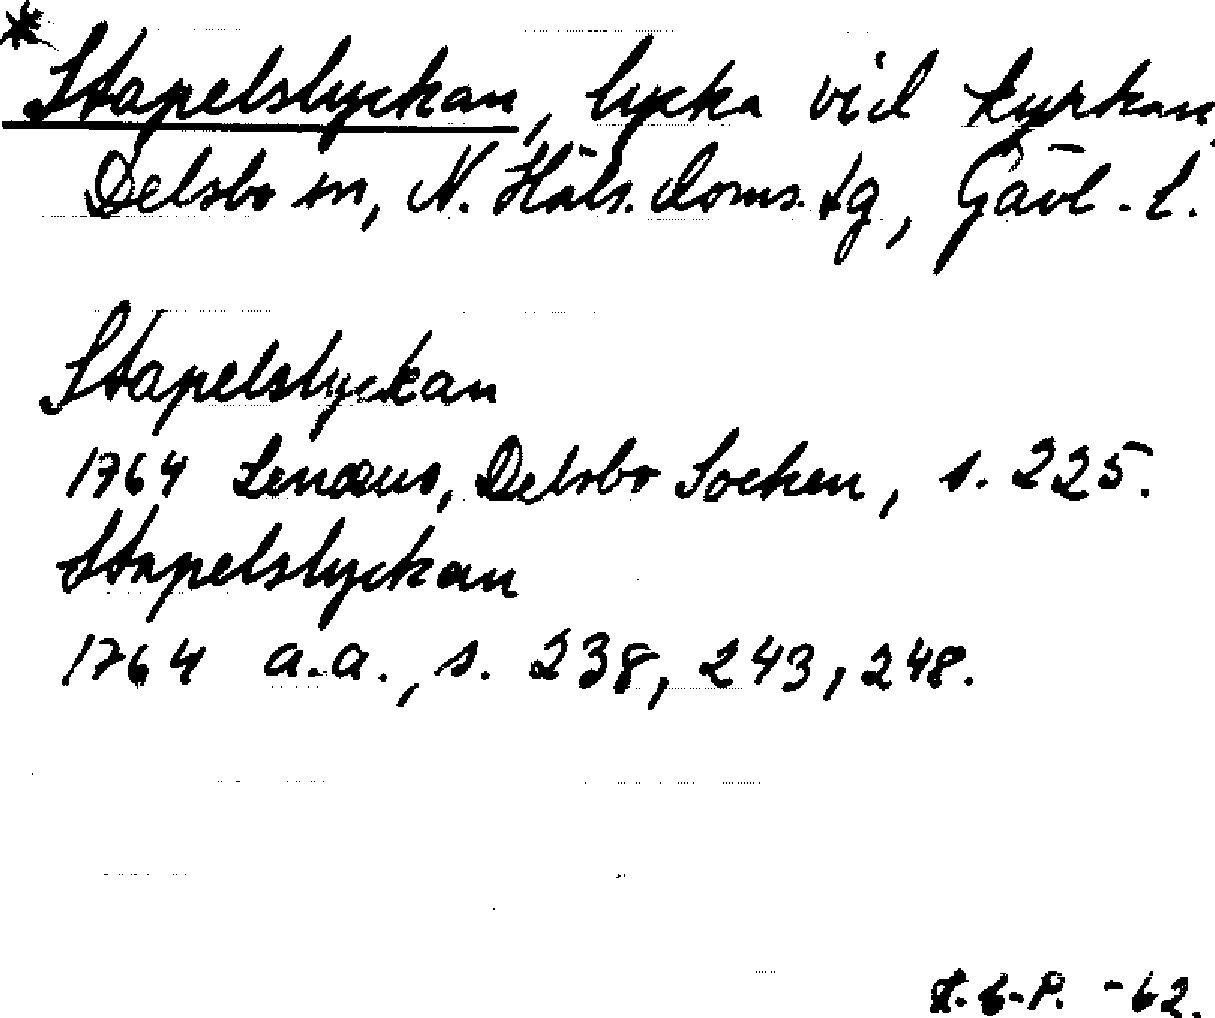 * Stapelslyckan, lycka vid kyrkan,
Delsbo sn, N. Häls. doms. tg, Gävl. l.
Stapelslyckan
1764 Lenæus, Delsbo Socken, s. 225.
Stapelslyckan
1764 a.a., s. 238, 243, 248.
-62.